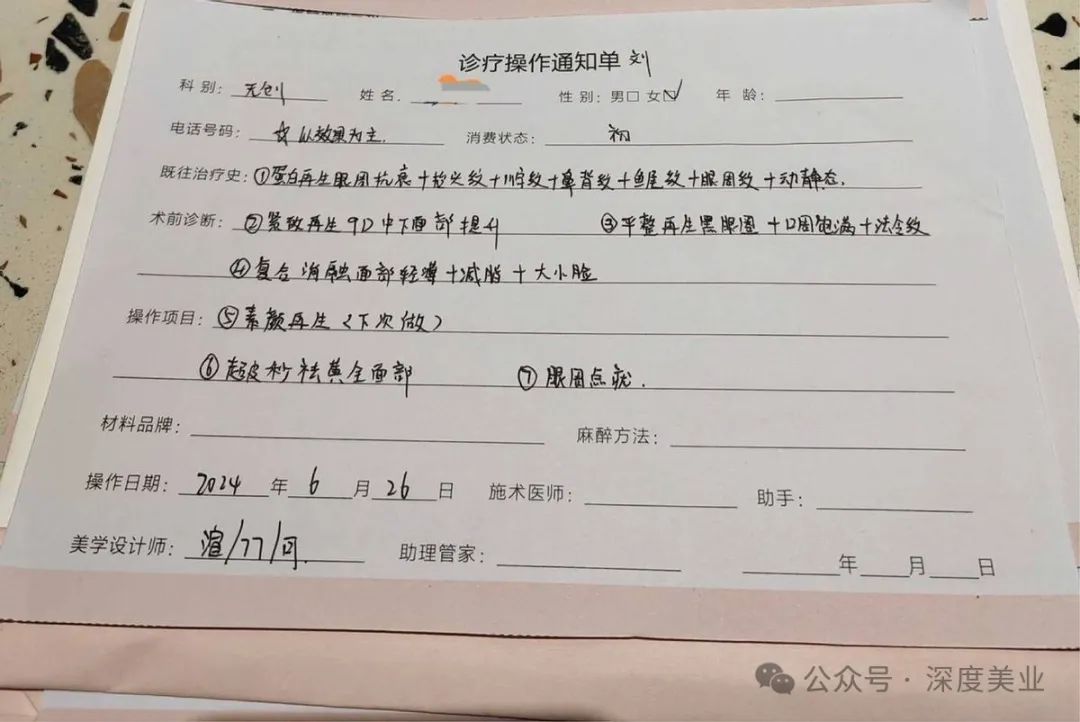 诊疗操作通知单 刘
科别: 无创 姓名. 性别: 男□ 女☑ 年龄:
电话号码: 以效果为主. 消费状态: 初
既往治疗史: ①蛋白再生眼周抗衰+抬头纹+川字纹+鼻背纹+鱼尾纹+眼周纹+动静态.
术前诊断: ②紧致再生9D中下面部提升 ③平整再生黑眼圈+口周饱满+法令纹
④复合消融面部轻薄+减脂+大小脸
操作项目: ⑤素颜再生(下次做)
⑥超皮秒祛黄全面部 ⑦眼周点疣.
材料品牌: 麻醉方法:
操作日期: 2024年6月26日 施术医师: 助手:
美学设计师: 渲/77/ 助理管家: 年 月 日
公众号·深度美业